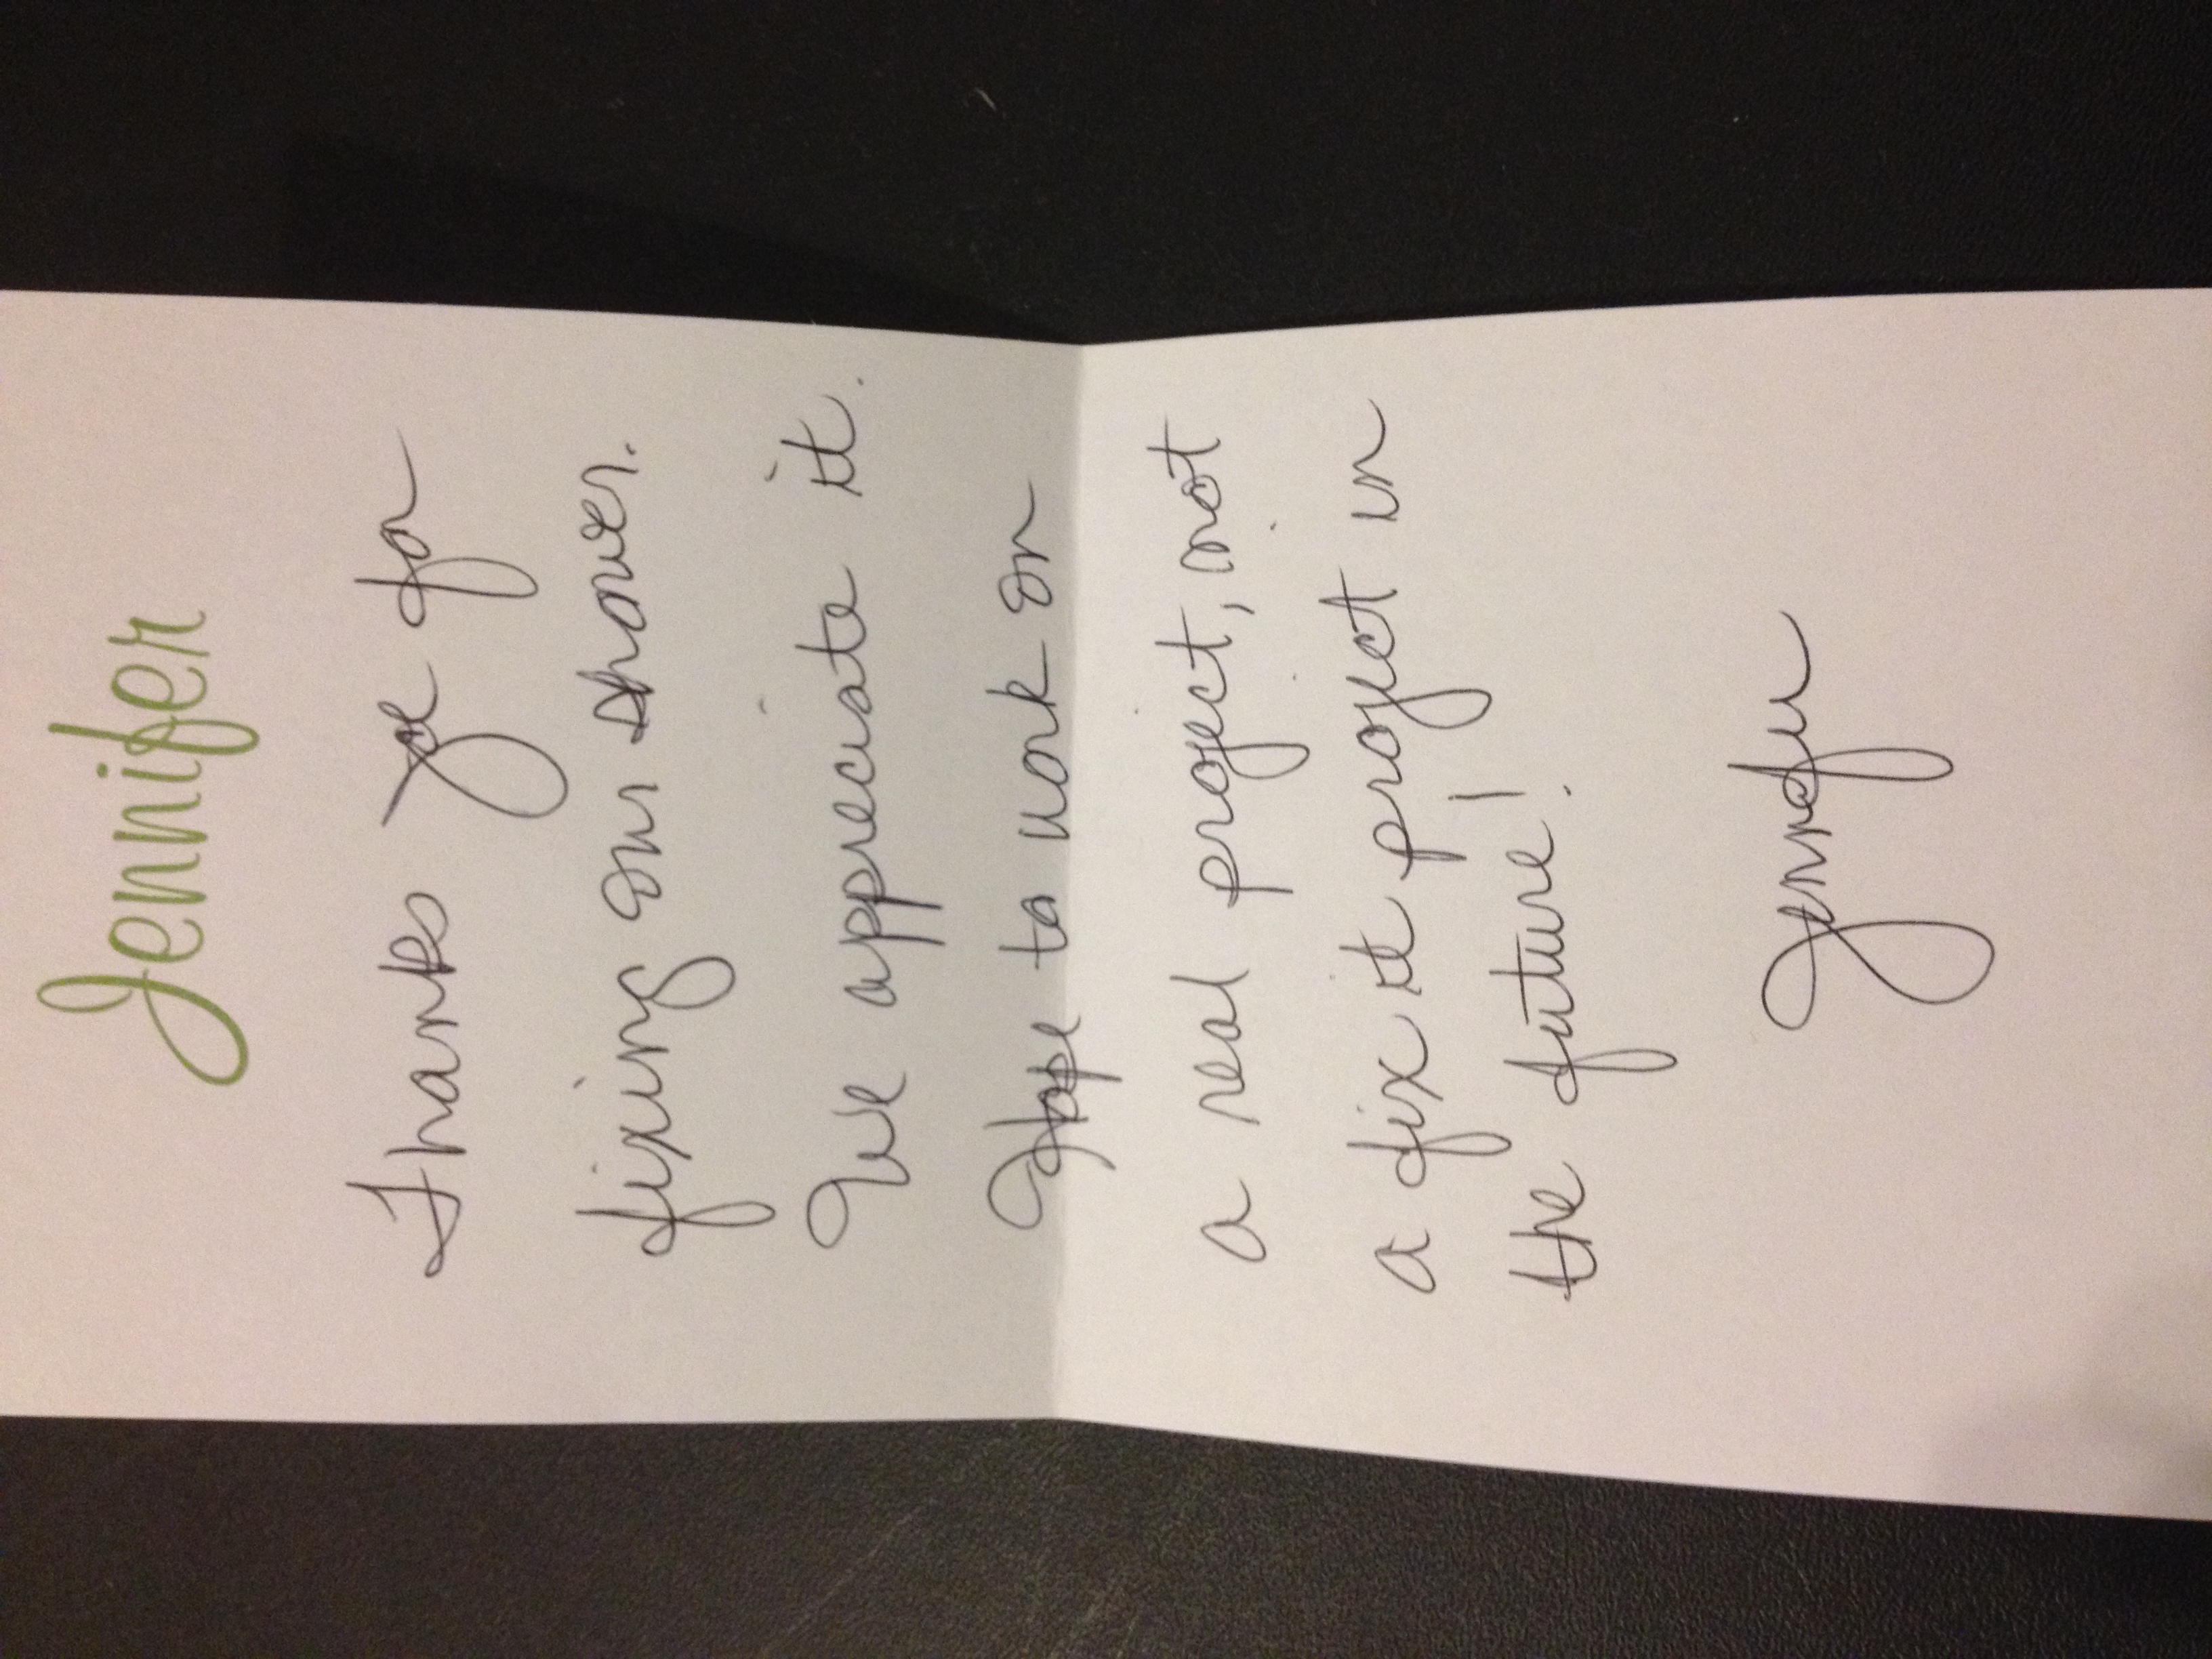 Jennifer
Thanks for
fixing our shower.
We appreciate it.
Hope to work on
a real project, not
a fix it project in
the future!
Jennifer